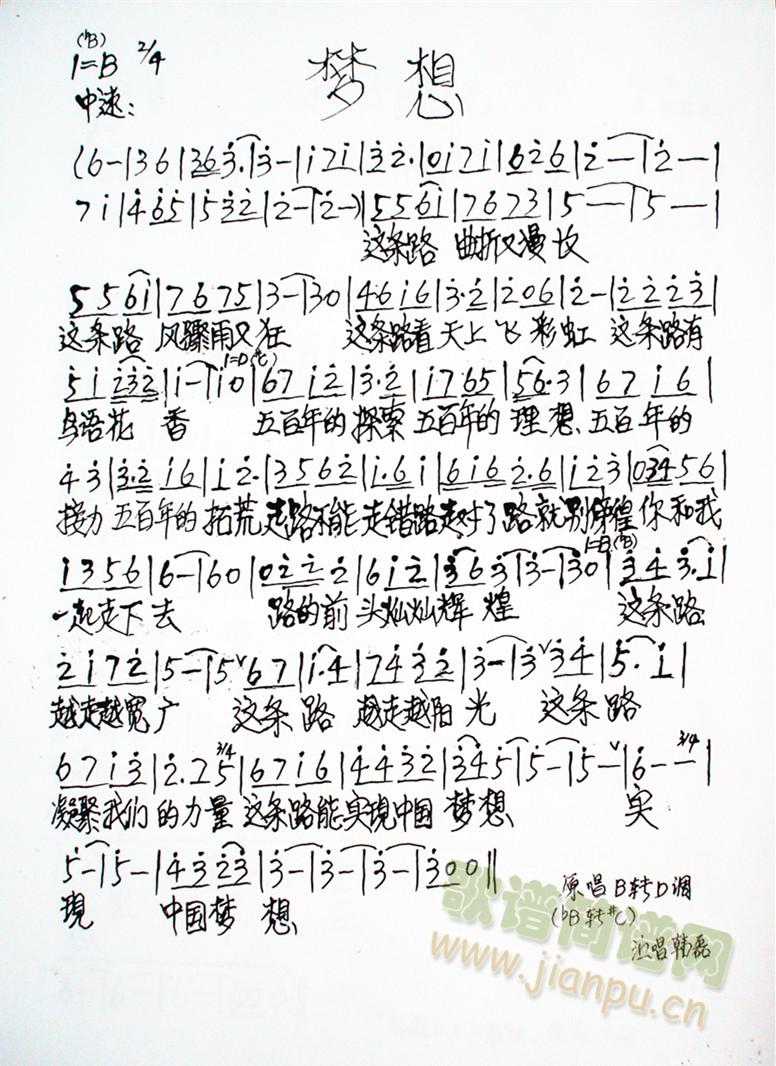 (bB)
1=B 2/4
梦想
中速:
(6-|36|363.|3-|i7i|32.|0i7i|626|2-|2-|
7i|465|532|2-|2-)|556i|7673|5-|5-|
这条路 曲折又漫长
556i|7675|3-|30|46i6|3.2|206|2-|2223|
这条路 风骤雨又狂 这条路看天上飞彩虹 这条路有
1=D(#C)
5i232|i-|i0|67i2|3.2|i765|56.3|67i6|
鸟语花 香 五百年的 探索 五百年的 理想 五百年的
43|3.2i6|i2.|3562|i.6i|6i62.6|i23|03456|
接力 五百年的 拓荒 起路不能 走错路走对了路就别彷徨 你和我
1=B(bB)
i356|6-|60|0222|6i2|363|3-|30|343.i|
一起走下去 路的前 头灿灿辉 煌 这条路
2i72|5-|5ˇ67|i.4|7432|3-|3ˇ34|5.i|
越走越宽广 这条路 越走越阳光 这条路
3/4 3/4
67i3|2.25|67i6|4432|345|5-|5-ˇ|6--|
凝聚我们的力量 这条路能实现中国 梦想 实
5-|5-|4323|3-|3-|3-|300||
現 中国梦 想
原唱B转D调
(bB转#C)
演唱韩磊
歌谱简谱网
www.jianpu.cn